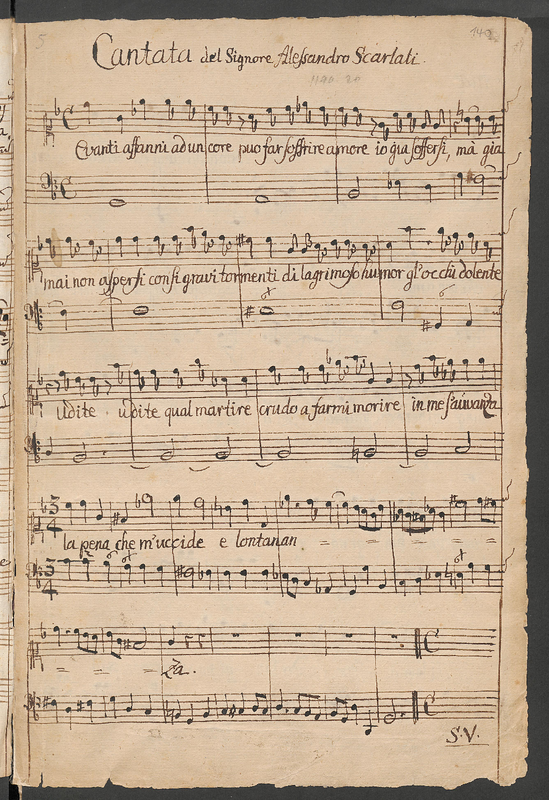 5
140
Cantata del Signore Alessandro Scarlati.
Evanti affanni ad un core puo far soffrire amore io gia soffersi, mà gia
mai non aspersi con si gravi tormenti di lagrimoso humor gl'occhi dolente
udite udite qual martire crudo a farmi morire in me s'auvanza
la pena che m'uccide e lontanan = = = = = =
= = = za.
S.V.